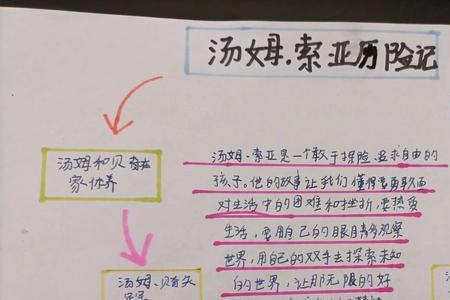 汤姆.索亚历险记
汤姆和贝
家休养
汤姆.索亚是一个敢于探险、追求自由的
孩子。他的故事让我们懂得要勇敢面
对生活中的困难和挫折,要热爱
生活,要用自己的眼睛多观察
世界,用自己的双手去探索未知
的世界,让那无限的好
汤姆、贝